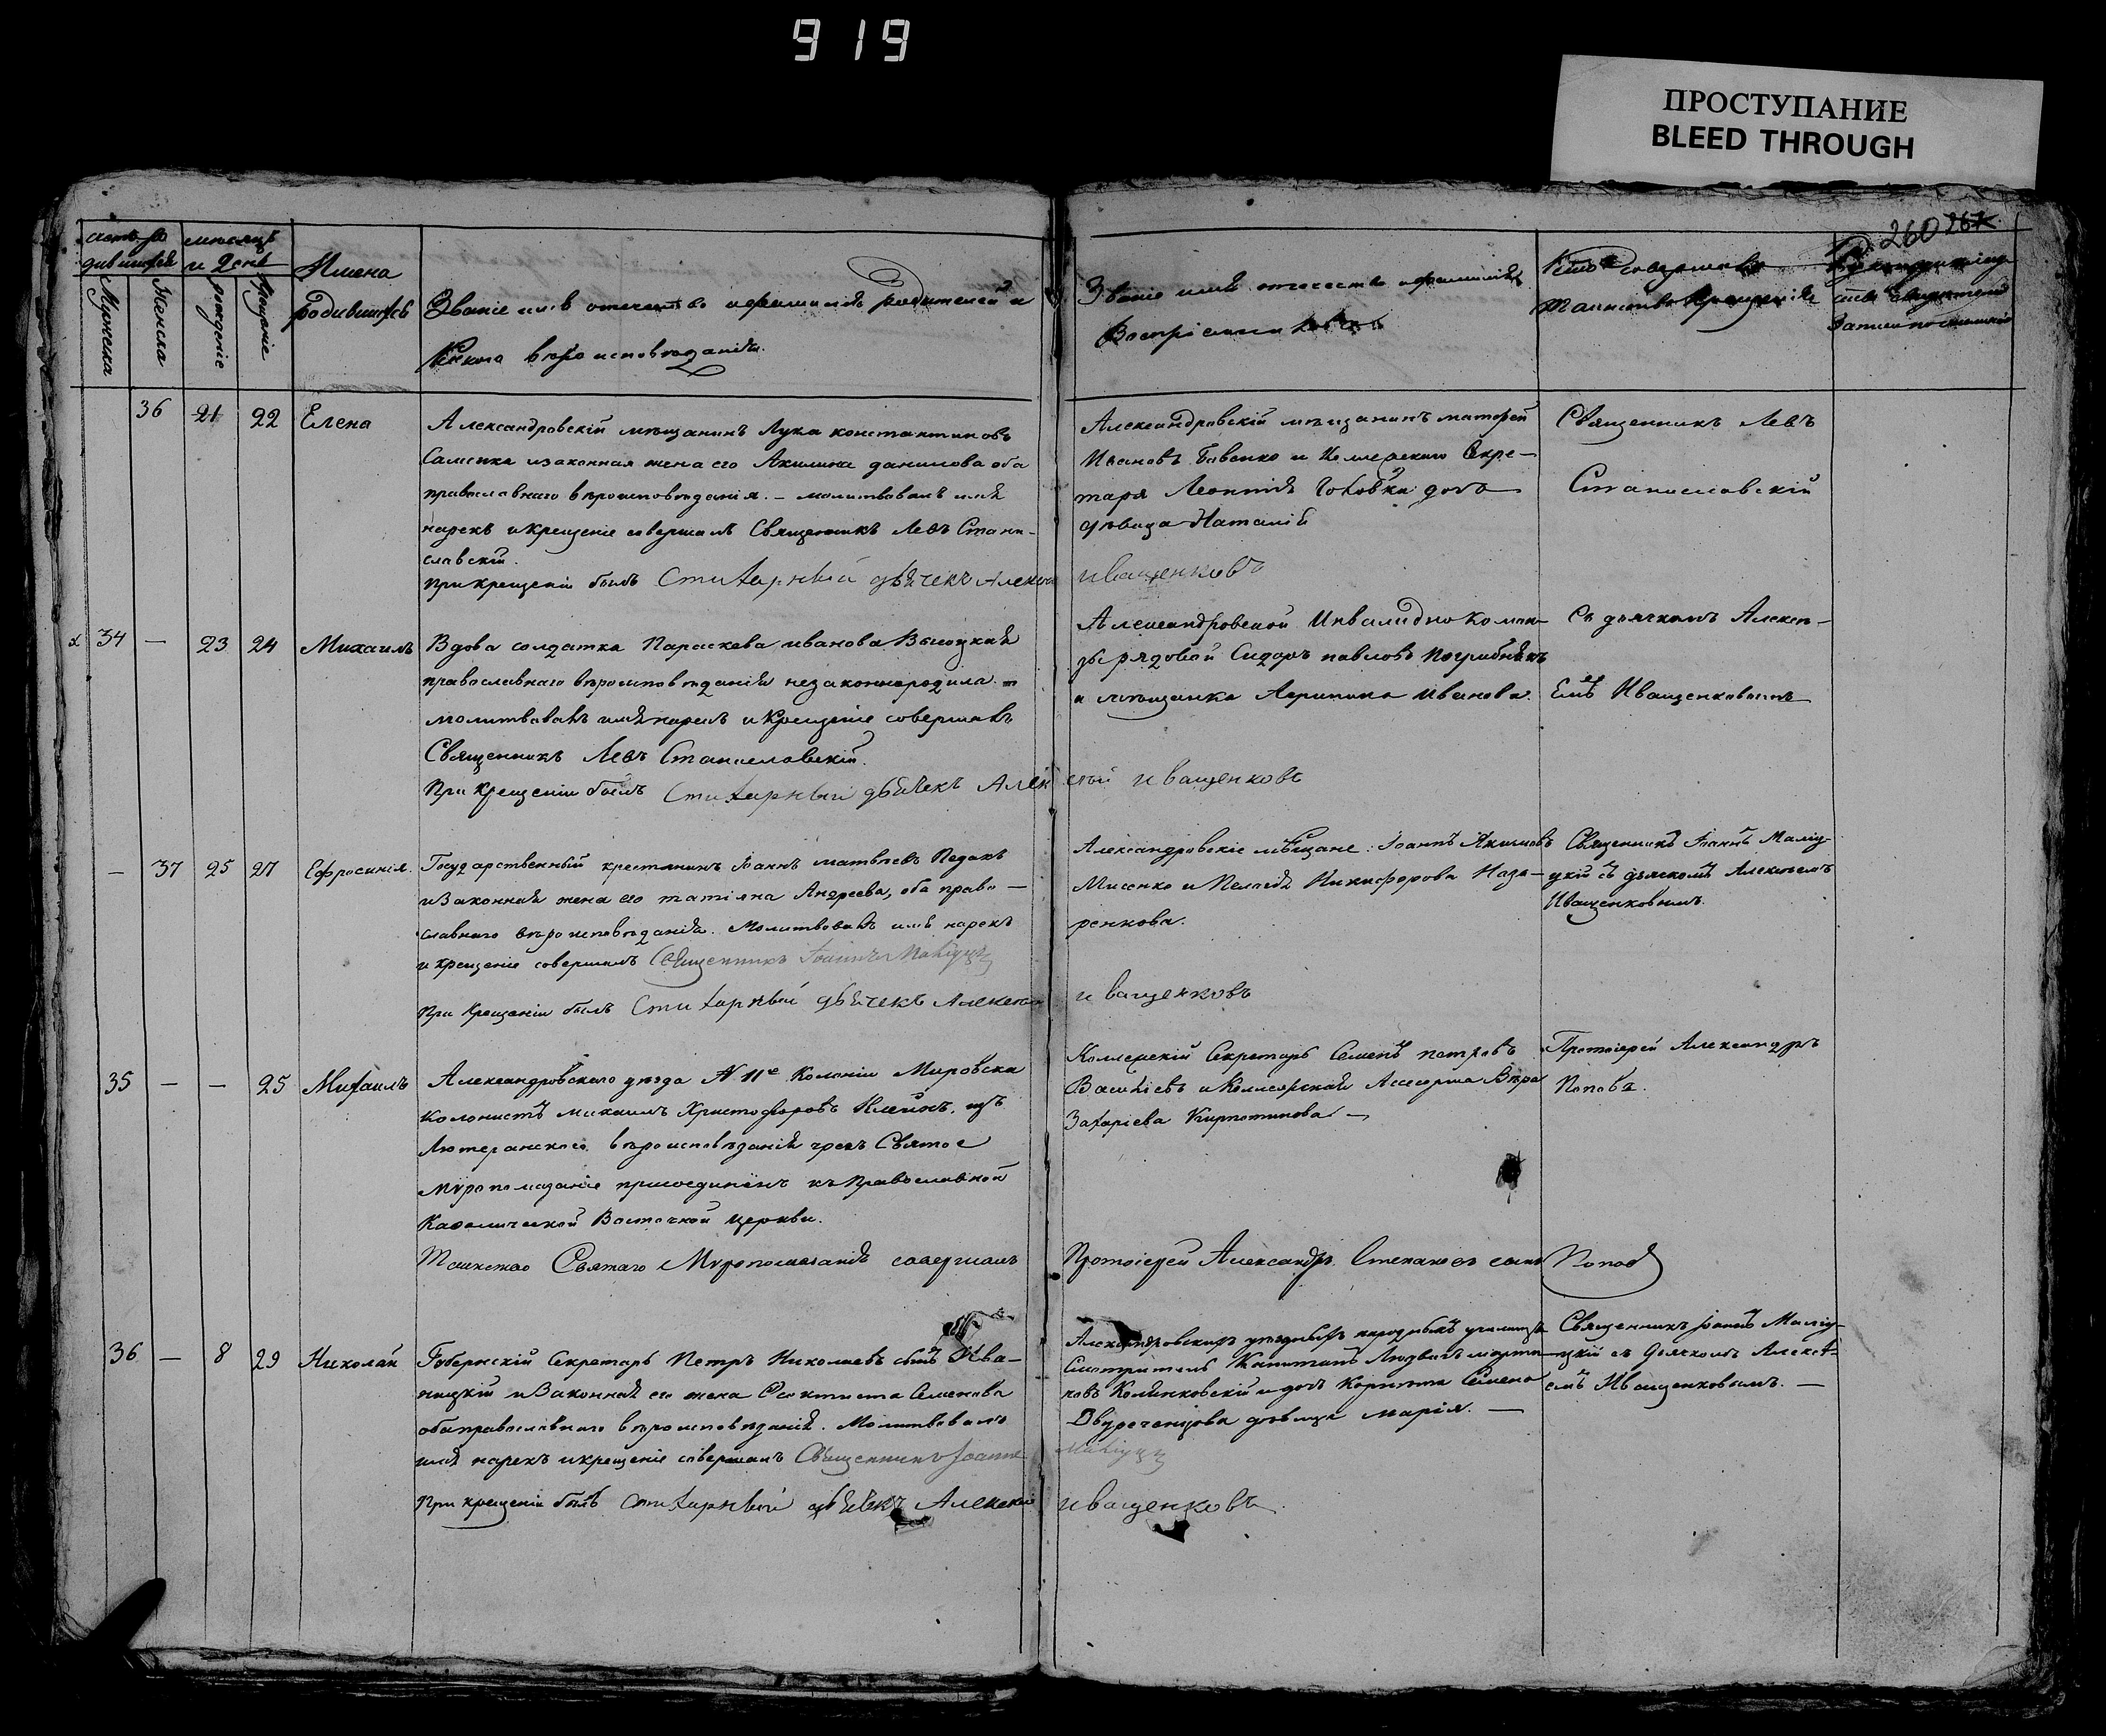 919
ПРОСТУПАНИЕ
BLEED THROUGH
260 267
мѣсяцъ
и день
Имена
родившихся
Мужеска
Женска
рожденіе
крещеніе
Званіе имя отечество и фамилія родителей и
какого вѣроисповѣданія.
Званіе имя отчество и фамилія
Воспріемниковъ
Кто совершалъ
таинство крещенія
36 21 22 Елена
Александровскій мѣщанинъ Лука константиновъ
законная жена его Акилина данилова оба
православнаго вѣроисповѣданія. – молитвовалъ имя
нарекъ и крещеніе совершалъ Священникъ Левъ Стани-
славскій.
при крещеніи былъ Стихарный дьячекъ Алексей Иващенковъ
Александровскій мѣщанинъ
Ивановъ Бабенко и Коллежскаго Секре-
таря Леонтія дочь
дѣвица Наталія
Священникъ Левъ
Станиславскій
34 — 23 24 Михаилъ
Вдова солдатка Параскева иванова Высоцкая
православнаго вѣроисповѣданія незаконнородила. –
молитвовалъ имя нарекъ и Крещеніе совершалъ
Священникъ Левъ Станиславскій.
При крещеніи былъ Стихарный дьячекъ Алексей Иващенковъ
Александровской Инвалидной коман-
ды рядовой Сидоръ павловъ
и мѣщанка Агрипина Иванова.
Съ дьячкомъ Алексѣ-
емъ Иващенковымъ
— 37 25 27 Ефросинія.
Государственный крестянинъ Іоаннъ матвѣевъ Педакъ
и Законная жена его татіяна Андреева, оба право—
славнаго вѣроисповѣданія. Молитвовалъ имя нарекъ
и крещеніе совершалъ Священникъ Іоаннъ
При Крещеніи былъ Стихарный дьячекъ Алексей Иващенковъ
Александровскіе мѣщане: Іоаннъ Акимовъ
Мисенко и Пелагія Никифорова Наза—
ренкова.
Священникъ Іоаннъ
съ дьячкомъ Алексѣемъ
Иващенковымъ.
35 — — 25 Михаилъ
Александровскаго уѣзда N 11е Колоніи Мировска
колонистъ михаилъ Христофоровъ Клейнъ, изъ
Лютеранского вѣроисповѣданія чрезъ Святое
Мѵропомазаніе присоединенъ къ Православной
Каѳолической Восточной церкви.
Таинство Святаго Мѵропомазанія совершалъ Протоіерей Александръ Стефановъ сынъ Попов
Коллежскій Секретарь Семенъ петровъ
и Коллежская Асесорша Вѣра
Захаріева Кирпотинова —
Протоіерей Александръ
Поповъ.
36 — 8 29 Николай
Губернскій Секретарь Петръ Николаевъ сынъ Ива—
ницкій и Законная его жена Феоктиста Семенова
оба православнаго вѣроисповѣданія. Молитвовалъ
имя нарекъ и крещеніе совершалъ Священникъ Іоаннъ
При крещеніи былъ Стихарный дьячекъ Алексей Иващенковъ
Александровскихъ уѣздныхъ народныхъ училищъ
Смотритель Капитанъ Людвигъ марти—
новъ и дочь Корнета Семена
дѣвица марія. —
Священникъ Іоаннъ
съ Дьячкомъ Алексѣ-
емъ Иващенковымъ. —